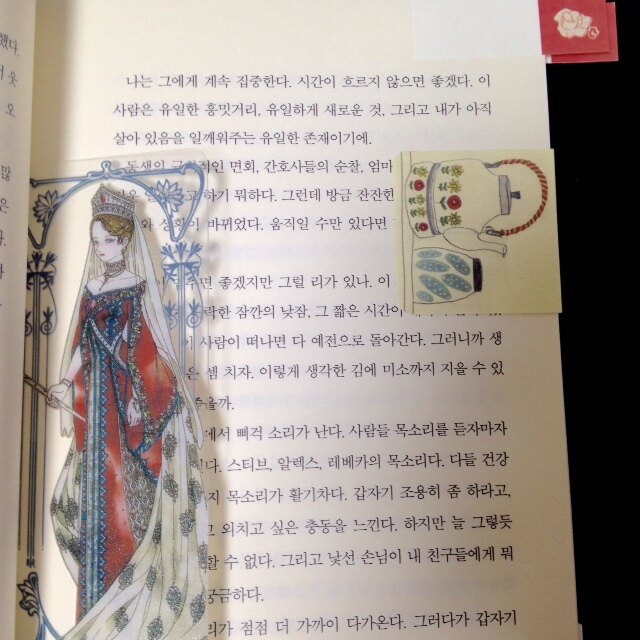 했다.
오
많
은
나는 그에게 계속 집중한다. 시간이 흐르지 않으면 좋겠다. 이
사람은 유일한 흥밋거리, 유일하게 새로운 것, 그리고 내가 아직
살아 있음을 일깨워주는 유일한 존재이기에.
동생의 인 면회, 간호사들의 순찰, 엄마
하기 뭐하다. 그런데 방금 잔잔한
바뀌었다. 움직일 수만 있다면
면 좋겠지만 그럴 리가 있나. 이
잠깐의 낮잠, 그 짧은 시간이
사람이 떠나면 다 예전으로 돌아간다. 그러니까 생
셈 치자. 이렇게 생각한 김에 미소까지 지을 수 있
을까.
에서 삐걱 소리가 난다. 사람들 목소리를 듣자마자
스티브, 알렉스, 레베카의 목소리다. 다들 건강
목소리가 활기차다. 갑자기 조용히 좀 하라고,
외치고 싶은 충동을 느낀다. 하지만 늘 그렇듯
할 수 없다. 그리고 낯선 손님이 내 친구들에게 뭐
궁금하다.
리가 점점 더 가까이 다가온다. 그러다가 갑자기